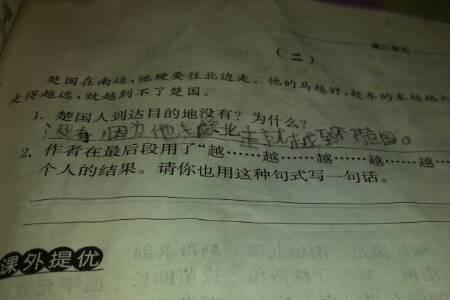 (二)
楚国在南边,他硬要往北边走。他的马越好,赶车的本领越大
走得越远,就越到不了楚国。
1. 楚国人到达目的地没有?为什么?
没有,因为他
2. 作者在最后段用了“越……越……越……越……越…
个人的结果。请你也用这种句式写一句话。
课外提优